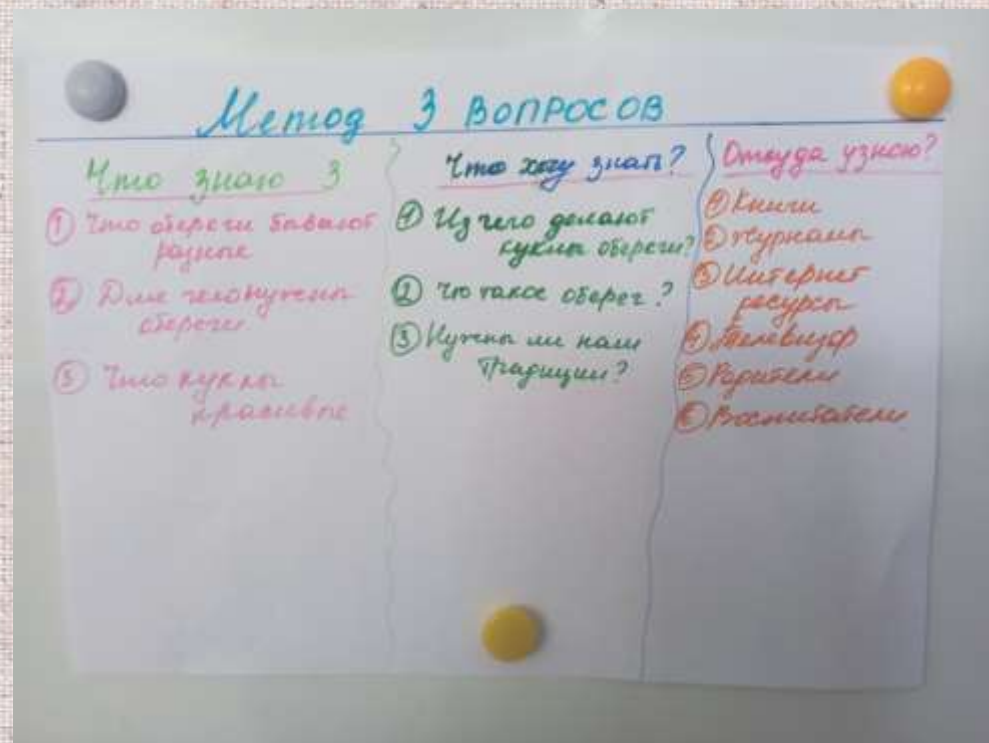 Метод 3 ВОПРОСОВ
Что знаю 3
① Что обереги бывают
разные
② Для чего нужны
обереги
③ Что куклы
красивые
Что хочу знать?
① Из чего делают
куклы обереги?
② Что такое оберег?
③ Нужны ли нам
традиции?
Откуда узнаю?
① Книги
② Журналы
③ Интернет
ресурсы
④ Телевизор
⑤ Родители
⑥ Воспитатели